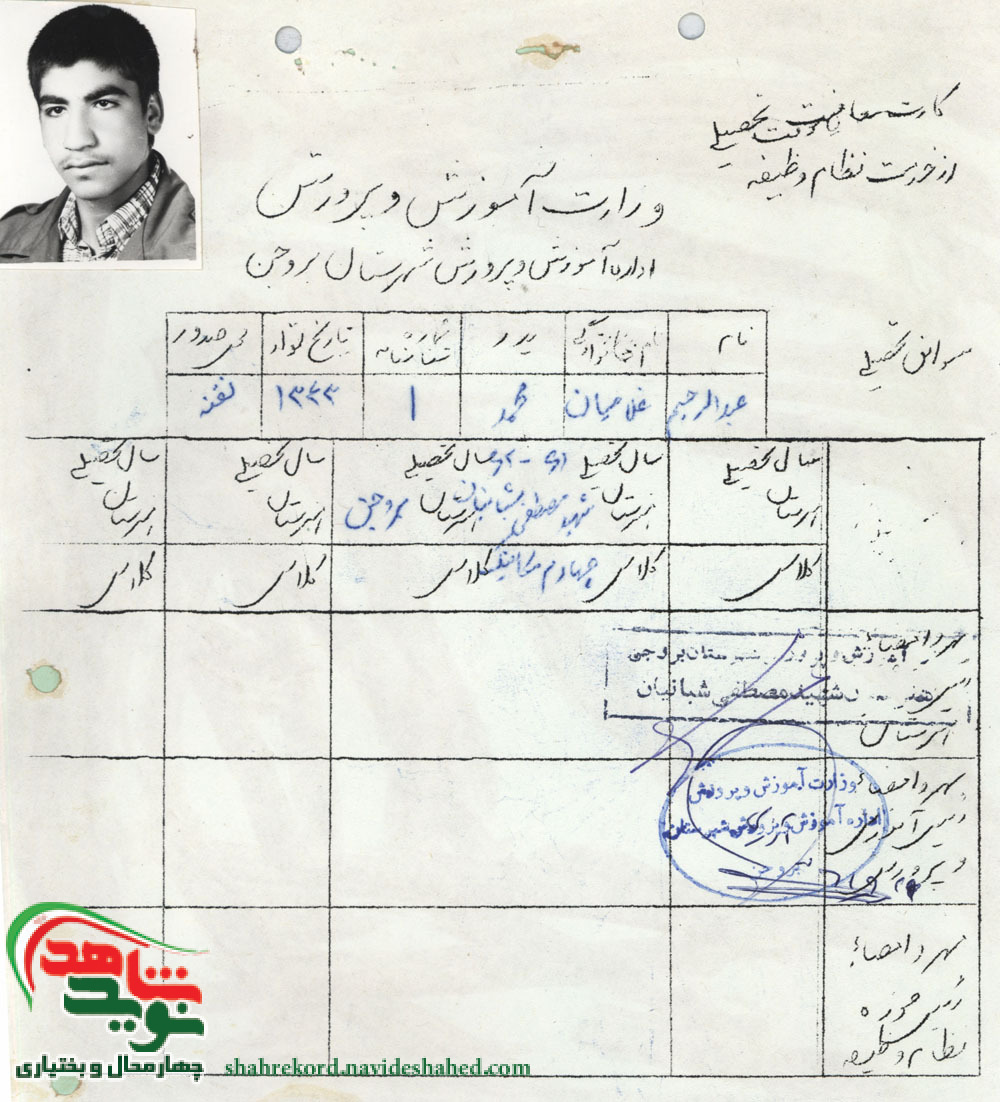 کارت معافیت موقت تحصیلی
از خدمت نظام وظیفه
وزارت آموزش و پرورش
اداره آموزش و پرورش شهرستان بروجن
سوابق تحصیلی
نام نام خانوادگی پدر شماره شناسنامه تاریخ تولد محل صدور
عبدالرحیم غلامیان محمد ۱ ۱۳۴۳ نقنه
سال تحصیلی سال تحصیلی سال تحصیلی سال تحصیلی سال تحصیلی
دبیرستان دبیرستان شهید مصطفی شبانیان بروجن دبیرستان دبیرستان دبیرستان
کلاس کلاس چهارم مکانیک کلاس کلاس کلاس
مهر و امضاء
رئیس
دبیرستان
آموزش و پرورش شهرستان بروجن
شهید مصطفی شبانیان
مهر و امضاء
رئیس آموزش
و پرورش
وزارت آموزش و پرورش
اداره آموزش و پرورش شهرستان
بروجن
مهر و امضاء
رئیس حوزه
نظام وظیفه
نوید شاهد
چهارمحال و بختیاری
shahrekord.navideshahed.com